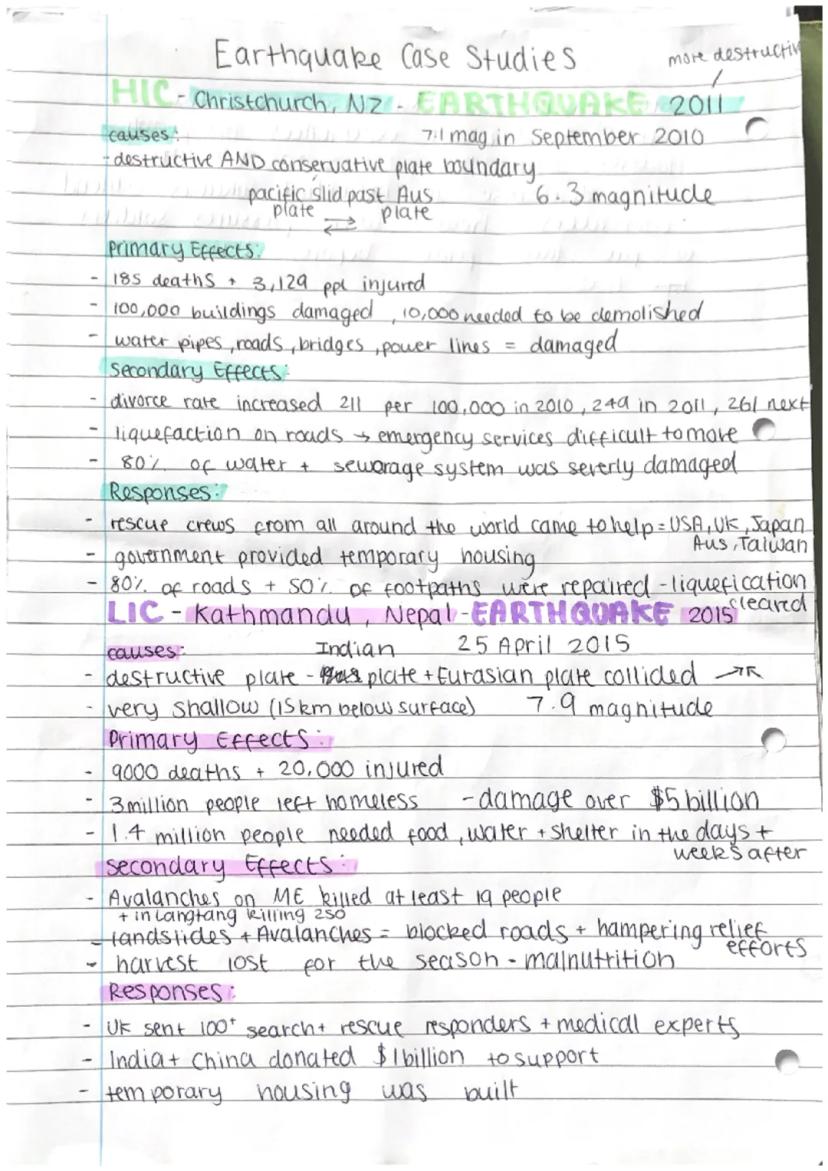 Earthquake Case Studies
more destructive
HIC - Christchurch, NZ - EARTHQUAKE 2011
causes: 7.1 mag in September 2010
- destructive AND conservative plate boundary
pacific slid past Aus 6.3 magnitude
plate plate
Primary Effects:
- 185 deaths + 3,129 ppl injured
- 100,000 buildings damaged, 10,000 needed to be demolished
- water pipes, roads, bridges, power lines = damaged
Secondary Effects:
- divorce rate increased 211 per 100,000 in 2010, 249 in 2011, 261 next
- liquefaction on roads → emergency services difficult to move
- 80% of water + sewarage system was severly damaged
Responses:
- rescue crews from all around the world came to help = USA, UK, Japan
Aus, Taiwan
- government provided temporary housing
- 80% of roads + 50% of footpaths were repaired - liquefication
cleared
LIC - Kathmandu, Nepal - EARTHQUAKE 2015
causes: Indian 25 April 2015
- destructive plate - plate + Eurasian plate collided →←
- very shallow (15km below surface) 7.9 magnitude
Primary Effects:
- 9000 deaths + 20,000 injured
- 3 million people left homeless - damage over $5 billion
- 1.4 million people needed food, water + shelter in the days +
weeks after
Secondary Effects:
- Avalanches on ME killed at least 19 people
+ in Langtang killing 250
- landslides + Avalanches = blocked roads + hampering relief
efforts
- harvest lost for the season - malnutrition
Responses:
- UK sent 100+ search + rescue responders + medical experts
- India + China donated $1 billion to support
- temporary housing was built